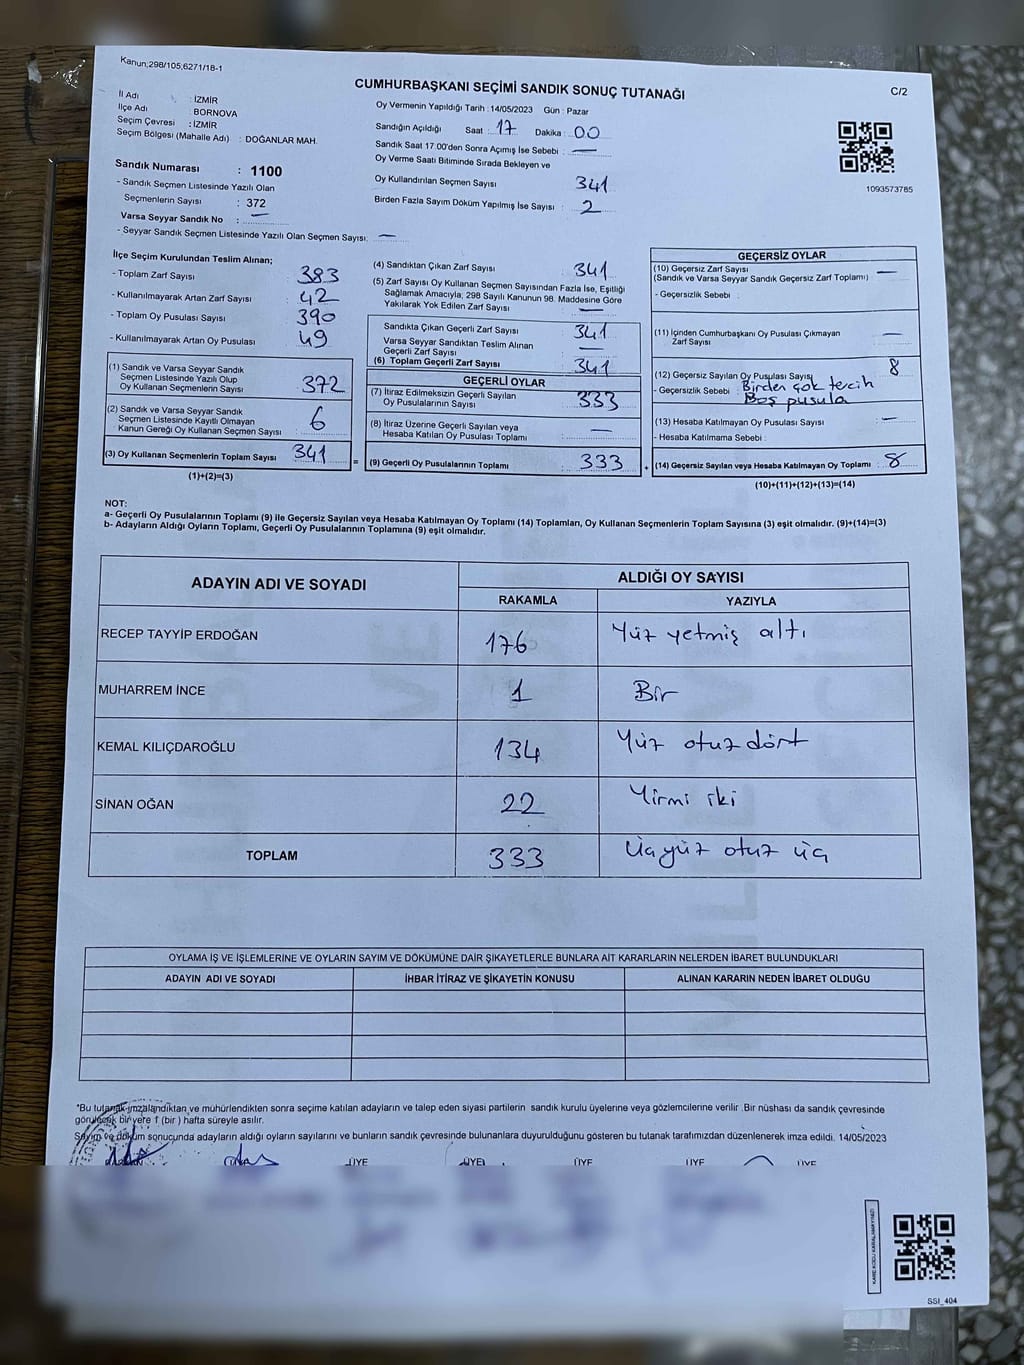 Kanun;298/105,6271/18-1
CUMHURBAŞKANI SEÇİMİ SANDIK SONUÇ TUTANAĞI
C/2
İl Adı : İZMİR
İlçe Adı : BORNOVA
Seçim Çevresi : İZMİR
Seçim Bölgesi (Mahalle Adı) : DOĞANLAR MAH.
Sandık Numarası : 1100
- Sandık Seçmen Listesinde Yazılı Olan
Seçmenlerin Sayısı : 372
Varsa Seyyar Sandık No : —
- Seyyar Sandık Seçmen Listesinde Yazılı Olan Seçmen Sayısı: —
Oy Vermenin Yapıldığı Tarih : 14/05/2023 Gün : Pazar
Sandığın Açıldığı Saat : 17 Dakika : 00
Sandık Saat 17:00'den Sonra Açımış İse Sebebi : —
Oy Verme Saati Bitiminde Sırada Bekleyen ve
Oy Kullandırılan Seçmen Sayısı 341
Birden Fazla Sayım Döküm Yapılmış İse Sayısı : 2
1093573785
İlçe Seçim Kurulundan Teslim Alınan;
- Toplam Zarf Sayısı : 383
- Kullanılmayarak Artan Zarf Sayısı : 42
- Toplam Oy Pusulası Sayısı : 390
- Kullanılmayarak Artan Oy Pusulası : 49
(1) Sandık ve Varsa Seyyar Sandık
Seçmen Listesinde Yazılı Olup
Oy Kullanan Seçmenlerin Sayısı : 372
(2) Sandık ve Varsa Seyyar Sandık
Seçmen Listesinde Kayıtlı Olmayan
Kanun Gereği Oy Kullanan Seçmen Sayısı : 6
(3) Oy Kullanan Seçmenlerin Toplam Sayısı 341
(1)+(2)=(3)
(4) Sandıktan Çıkan Zarf Sayısı 341
(5) Zarf Sayısı Oy Kullanan Seçmen Sayısından Fazla İse, Eşitliği
Sağlamak Amacıyla; 298 Sayılı Kanunun 98. Maddesine Göre
Yakılarak Yok Edilen Zarf Sayısı : —
Sandıkta Çıkan Geçerli Zarf Sayısı 341
Varsa Seyyar Sandıktan Teslim Alınan
Geçerli Zarf Sayısı —
(6) Toplam Geçerli Zarf Sayısı 341
GEÇERLİ OYLAR
(7) İtiraz Edilmeksizin Geçerli Sayılan
Oy Pusulalarının Sayısı : 333
(8) İtiraz Üzerine Geçerli Sayılan veya
Hesaba Katılan Oy Pusulası Toplamı : —
= (9) Geçerli Oy Pusulalarının Toplamı : 333 +
GEÇERSİZ OYLAR
(10) Geçersiz Zarf Sayısı —
(Sandık ve Varsa Seyyar Sandık Geçersiz Zarf Toplamı)
- Geçersizlik Sebebi :
(11) İçinden Cumhurbaşkanı Oy Pusulası Çıkmayan
Zarf Sayısı —
(12) Geçersiz Sayılan Oy Pusulası Sayısı 8
- Geçersizlik Sebebi : Birden çok tercih
Boş pusula
(13) Hesaba Katılmayan Oy Pusulası Sayısı —
- Hesaba Katılmama Sebebi :
(14) Geçersiz Sayılan veya Hesaba Katılmayan Oy Toplamı : 8
(10)+(11)+(12)+(13)=(14)
NOT:
a- Geçerli Oy Pusulalarının Toplamı (9) ile Geçersiz Sayılan veya Hesaba Katılmayan Oy Toplamı (14) Toplamları, Oy Kullanan Seçmenlerin Toplam Sayısına (3) eşit olmalıdır. (9)+(14)=(3)
b- Adayların Aldığı Oyların Toplamı, Geçerli Oy Pusulalarının Toplamına (9) eşit olmalıdır.
ADAYIN ADI VE SOYADI ALDIĞI OY SAYISI
RAKAMLA YAZIYLA
RECEP TAYYİP ERDOĞAN 176 Yüz yetmiş altı
MUHARREM İNCE 1 Bir
KEMAL KILIÇDAROĞLU 134 Yüz otuz dört
SİNAN OĞAN 22 Yirmi iki
TOPLAM 333 Üçyüz otuz üç
OYLAMA İŞ VE İŞLEMLERİNE VE OYLARIN SAYIM VE DÖKÜMÜNE DAİR ŞİKAYETLERLE BUNLARA AİT KARARLARIN NELERDEN İBARET BULUNDUKLARI
ADAYIN ADI VE SOYADI İHBAR İTİRAZ VE ŞİKAYETİN KONUSU ALINAN KARARIN NEDEN İBARET OLDUĞU
*Bu tutanak imzalandıktan ve mühürlendikten sonra seçime katılan adayların ve talep eden siyasi partilerin sandık kurulu üyelerine veya gözlemcilerine verilir .Bir nüshası da sandık çevresinde
görülecek bir yere 1 (bir ) hafta süreyle asılır.
Sayım ve döküm sonucunda adayların aldığı oyların sayılarını ve bunların sandık çevresinde bulunanlara duyurulduğunu gösteren bu tutanak tarafımızdan düzenlenerek imza edildi. 14/05/2023
ÜYE ÜYE ÜYE ÜYE ÜYE
SSI_404